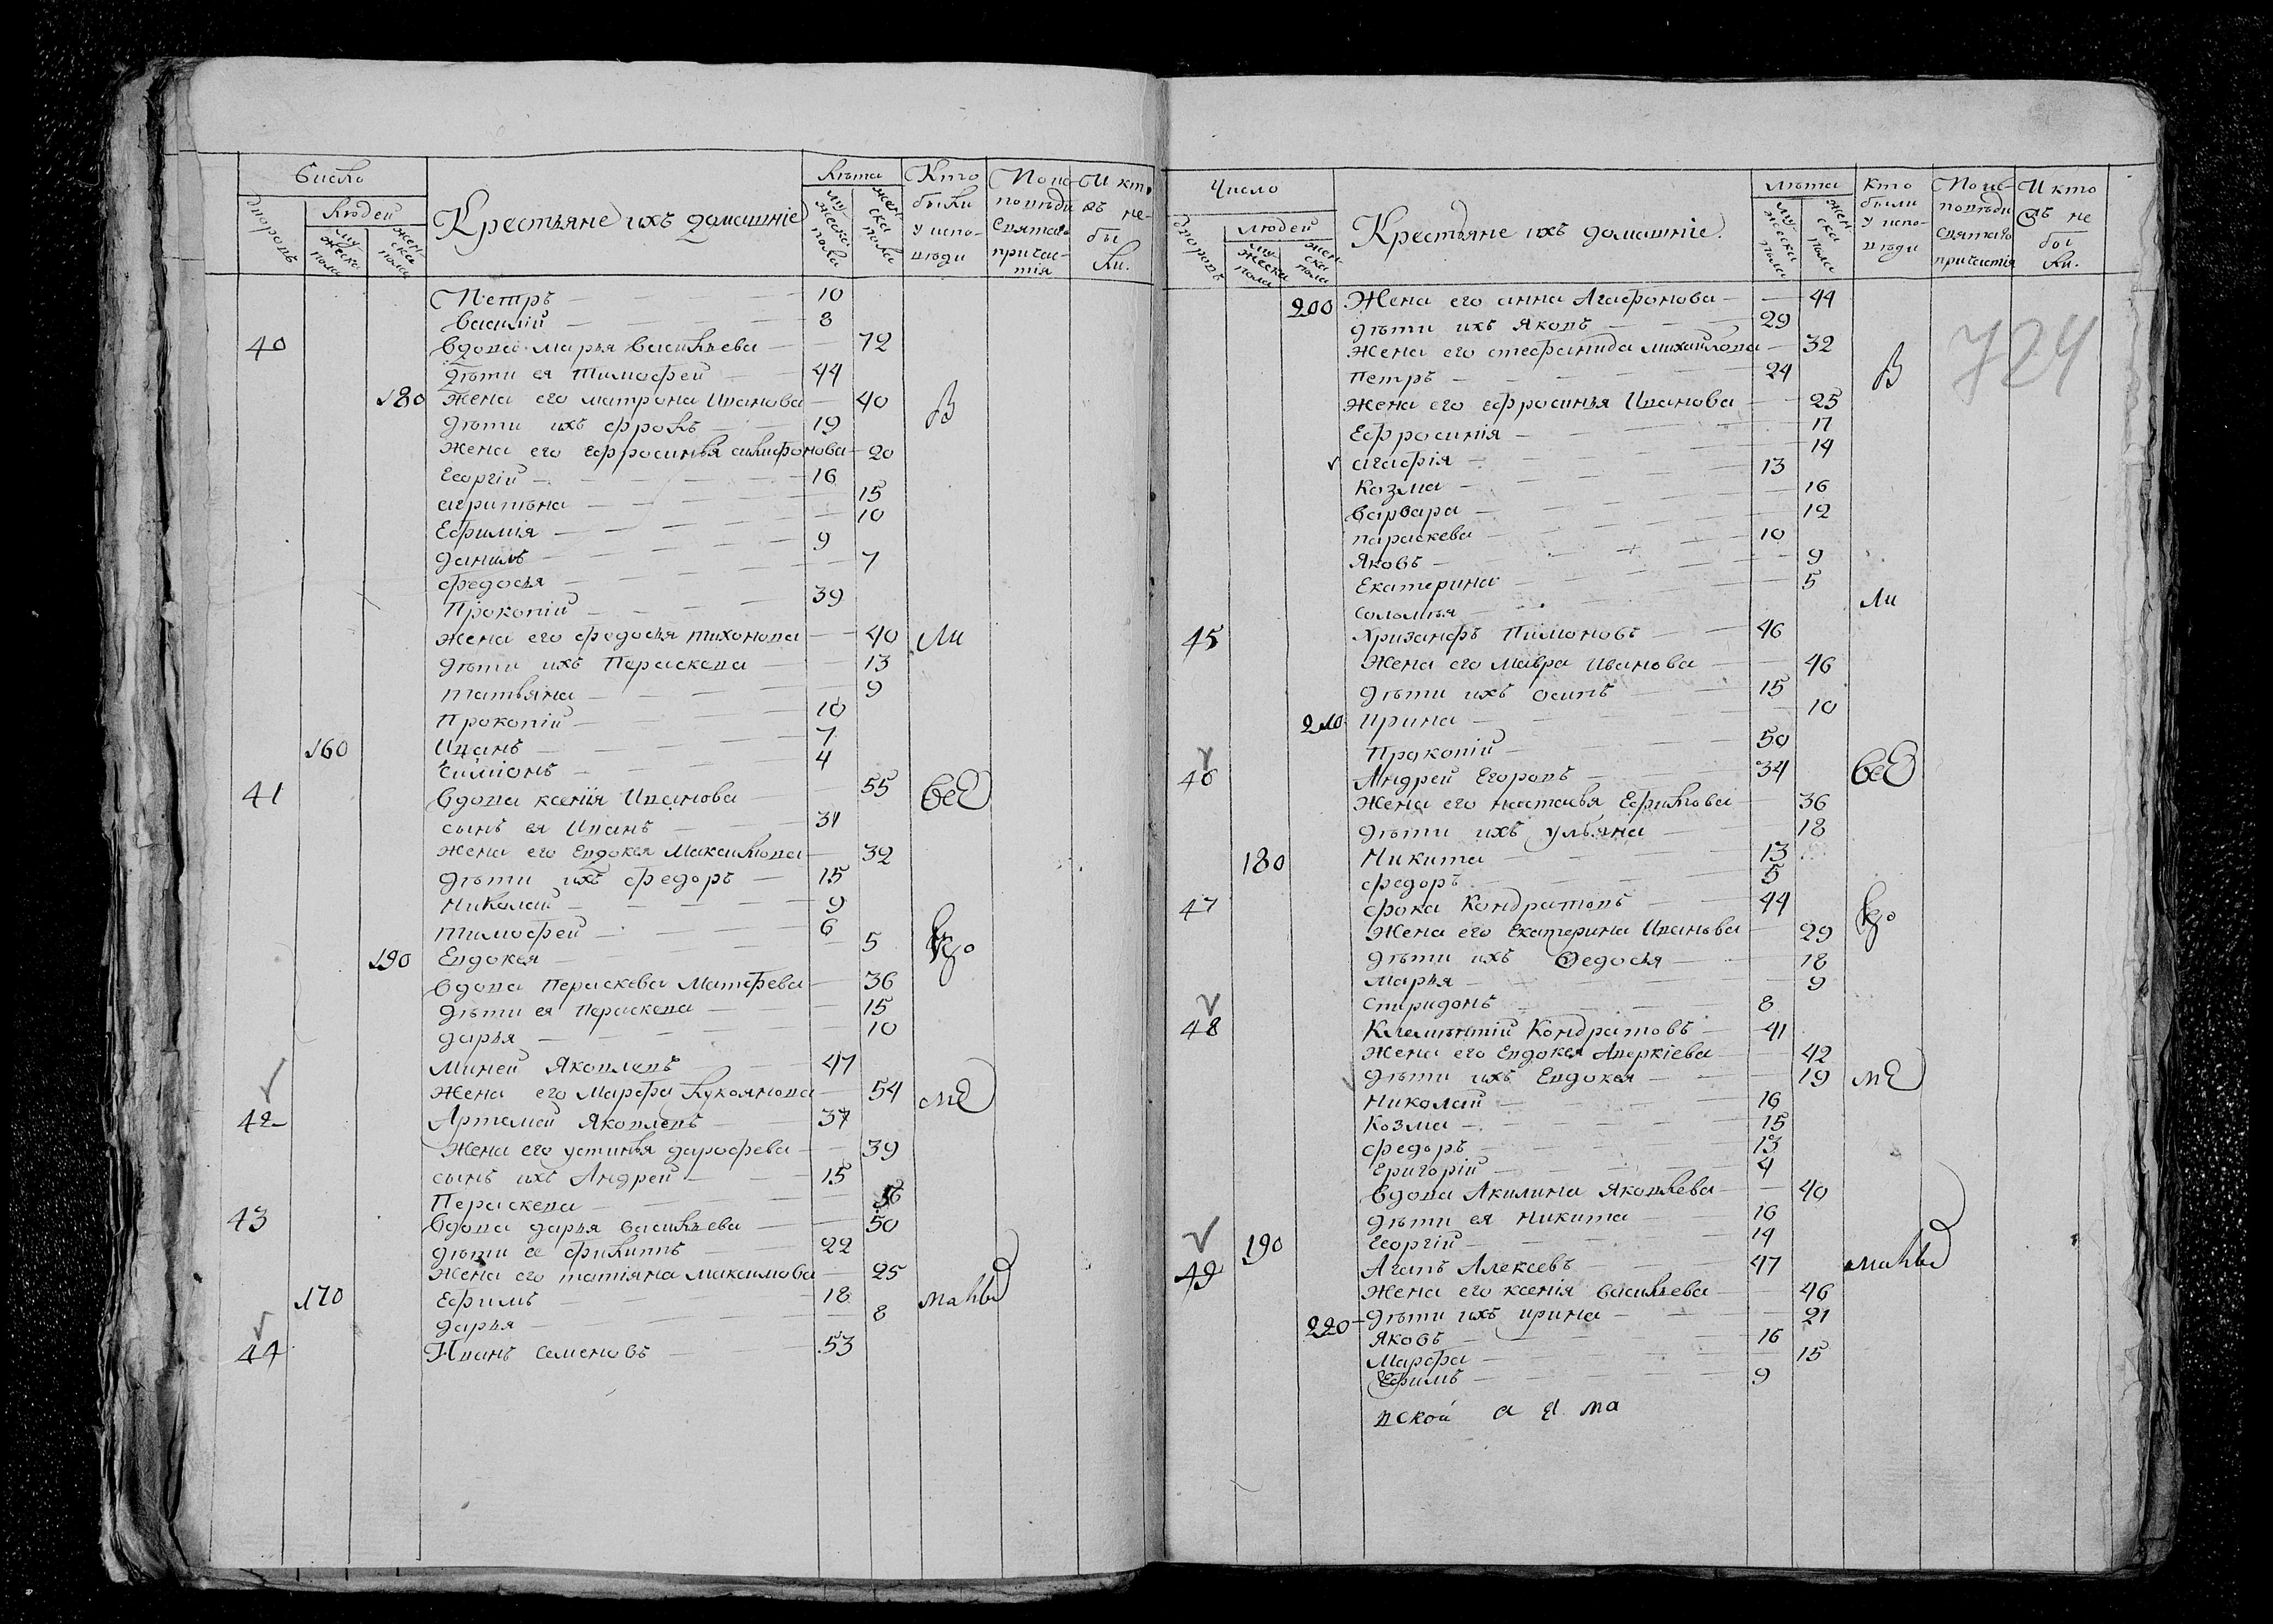 Число
Лѣта
Кто были у испо- вѣди
По испо- повѣди Святаго причас- тія
И кто съ не- бы ли.
дворовъ
Людей
му- жеска пола
жен- ска пола
Крестьяне ихъ домашніе
му- жеска пола
жен- ска пола
Петръ 10
Василій 8
40 Вдова Марья Васильева 72
Дѣти ея Тимофей 44
180 Жена его Матрона Иванова 40 В
Дѣти ихъ Фролъ 19
Жена его Ефросинья Филифонова 20
Георгій 16
Агрипѣна 15
Ефимія 10
Данилъ 9
Федосья 7
Прокопій 39
Жена его Федосья Тихонова 40 Ли
Дѣти ихъ Параскева 13
Татьяна 9
Прокопій 10
160 Иванъ 7
Симіонъ 4
41 Вдова Ксенія Иванова 55 Все
сынъ ея Иванъ 31
Жена его Евдокея Максимова 32
Дѣти ихъ Федоръ 15
Николай 9
Тимофей 6
190 Евдокея 5
Вдова Пераскева Матфева 36
Дѣти ея Пераскева 15
Дарья 10
Миней Яковлевъ 47
Жена его Марфа Лукоянова 54 ме
42 Артемей Яковлевъ 37
Жена его Устинья Дарофева 39
сынъ ихъ Андрей 15
Пераскева
43 Вдова Дарья Васильева 50
Дѣти ее Филиппъ 22
Жена его Татіяна Максимова 25
170 Ефимъ 18
Дарья 8
44 Иванъ Семеновъ 53
Число
Лѣта
Кто были у испо- вѣди
По ис- повѣди Святаго причастія
И кто съ не бы ли.
дворовъ
Людей
му- жеска пола
жен- ска пола
Крестьяне ихъ домашніе.
му- жеска пола
жен- ска пола
724
200 Жена его Анна Агафонова 44
Дѣти ихъ Яковъ 29
Жена его Стефанида Михайлова 32
Петръ 24 В
Жена его Ефросинья Иванова 25
Ефросинія 17
Агафія 14
Козма 13
Варвара 16
Параскева 12
Яковъ 10
Екатерина 9
Соломѣя 5
Ли
45 Хризанфъ Пимоновъ 46
Жена его Мавра Иванова 46
Дѣти ихъ Осипъ 15
210 Ирина 10
Прокопій 50
46 Андрей Егоровъ 34 Все
Жена его Настасья Ефимова 36
Дѣти ихъ Ульяна 18
180 Никита 13
Федоръ 5
47 Фока Кондратовъ 44
Жена его Екатерина Иванова 29
Дѣти ихъ Федосья 18
Марья 9
Спиридонъ 8
48 Клемѣнтій Кондратовъ 41
Жена его Евдокея Аверкіева 42
Дѣти ихъ Евдокея 19 ме
Николай 16
Козма 15
Федоръ 13
Григорій 4
Вдова Акилина Яковлева 40
Дѣти ея Никита 16
190 Георгій 14
49 Агапъ Алексѣвъ 47
Жена его Ксенія Васильева 46
220 Дѣти ихъ Ирина 21
Яковъ 16
Марфа 15
Ефимъ 9
вской